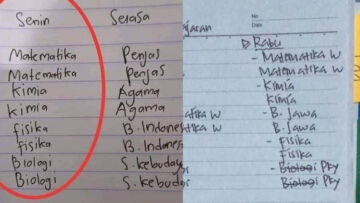 Senin Selasa
Matematika Penjas
Matematika Penjas
Kimia Agama
Kimia Agama
fisika B. Indones
fisika B. Indones
Biologi S. kebuday
Biologi S. kebud
No
Date
ajaran
Rabu
- Matematika W
Matematika W
- Kimia
Kimia
atika W - B. Jawa
atika W B. Jawa
- Fisika
Fisika
- Biologi Pky
Biologi Pky